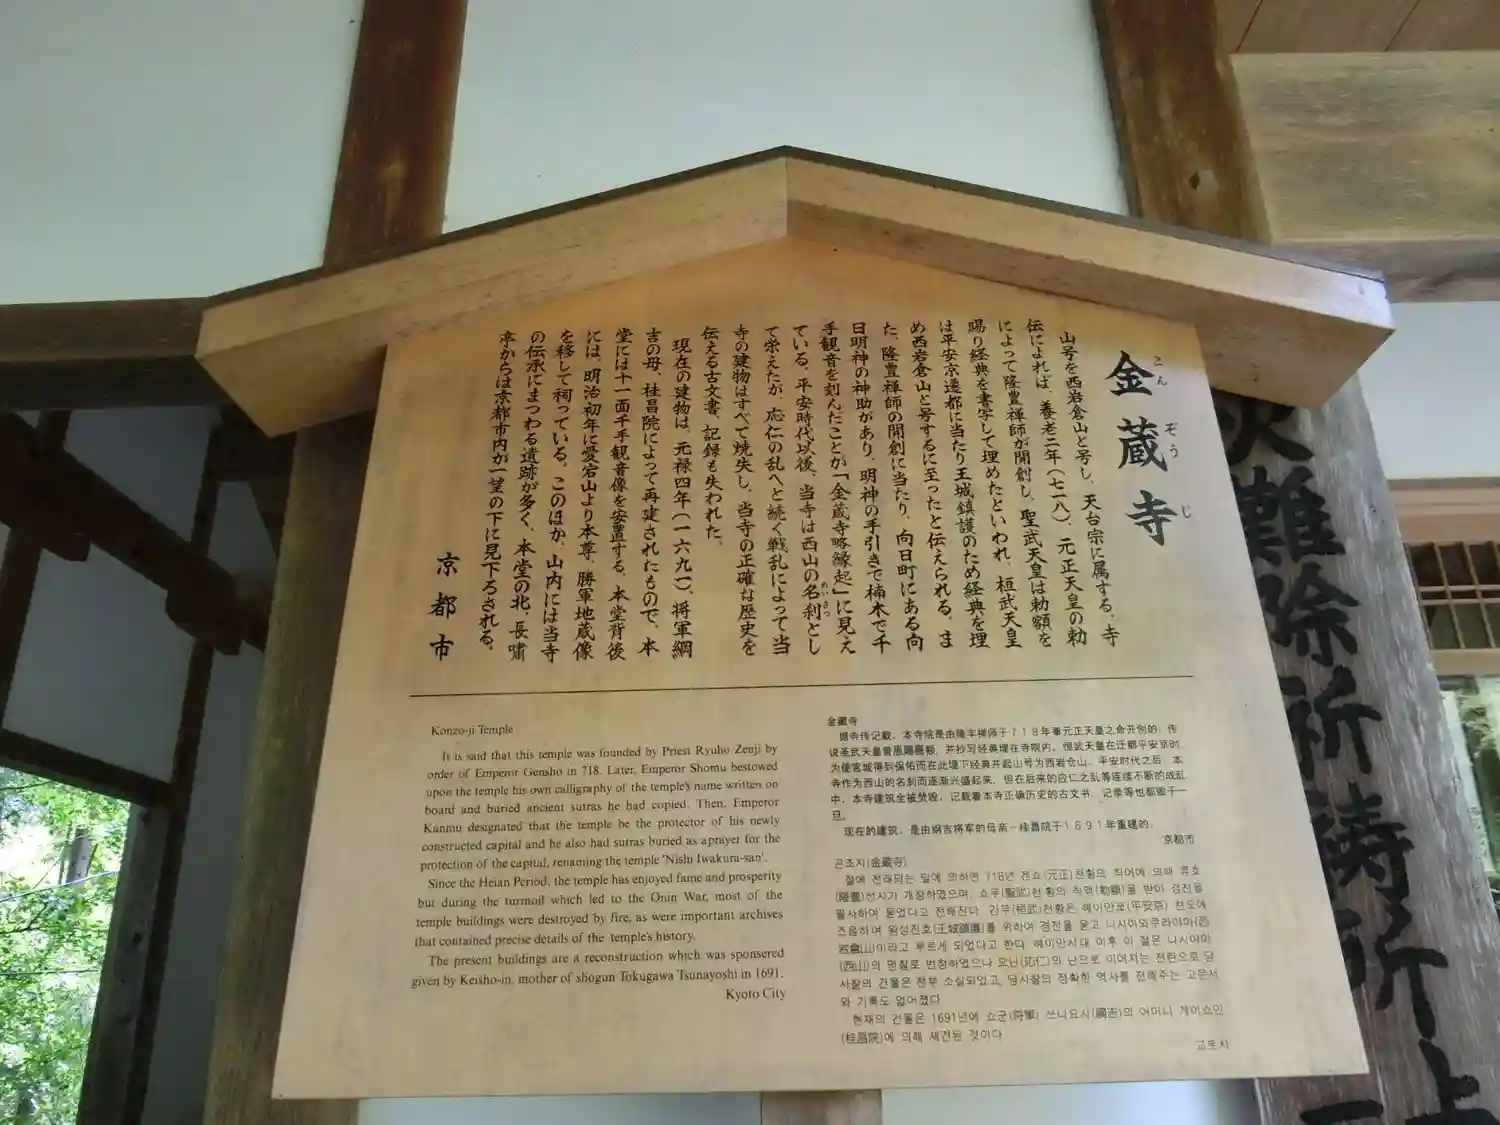 金蔵寺
こんぞうじ
山号を西岩倉山と号し、天台宗に属する。寺
伝によれば、養老二年（七一八）、元正天皇の勅
によって隆豊禅師が開創し、聖武天皇は勅額を
賜り経典を書写して埋めたといわれ、桓武天皇
は平安京遷都に当たり王城鎮護のため経典を埋
め西岩倉山と号するに至ったと伝えられる。ま
た、隆豊禅師の開創に当たり、向日町にある向
日明神の神助があり、明神の手引きで楠木で千
手観音を刻んだことが「金蔵寺略縁起」に見え
ている。平安時代以後、当寺は西山の名刹とし
めいさつ
て栄えたが、応仁の乱へと続く戦乱によって当
寺の建物はすべて焼失し、当寺の正確な歴史を
伝える古文書、記録も失われた。
現在の建物は、元禄四年（一六九一）、将軍綱
吉の母、桂昌院によって再建されたもので、本
堂には十一面千手観音像を安置する。本堂背後
には、明治初年に愛宕山より本尊、勝軍地蔵像
を移して祠っている。このほか、山内には当寺
の伝承にまつわる遺跡が多く、本堂の北、長嘯
亭からは京都市内が一望の下に見下ろされる。
京都市
Konzo-ji Temple
It is said that this temple was founded by Priest Ryuho Zenji by
order of Emperor Gensho in 718. Later, Emperor Shomu bestowed
upon the temple his own calligraphy of the temple's name written on
board and buried ancient sutras he had copied. Then, Emperor
Kanmu designated that the temple be the protector of his newly
constructed capital and he also had sutras buried as aprayer for the
protection of the capital, renaming the temple 'Nishi Iwakura-san'.
Since the Heian Period, the temple has enjoyed fame and prosperity
but during the turmoil which led to the Onin War, most of the
temple buildings were destroyed by fire, as were important archives
that contained precise details of the temple's history.
The present buildings are a reconstruction which was sponsered
given by Keisho-in, mother of shogun Tokugawa Tsunayoshi in 1691.
Kyoto City
金藏寺
据寺传记载，本寺院是由隆丰禅师于718年奉元正天皇之命开创的，传
说圣武天皇曾恩赐匾额，并抄写经典埋在寺院内。恒武天皇在迁都平安京时，
为使宫城得到保佑而在此埋下经典并起山号为西岩仓山。平安时代之后，本
寺作为西山的名刹而逐渐兴盛起来，但在后来的应仁之乱等连续不断的战乱
中，本寺建筑全被焚毁，记载着本寺正确历史的古文书、记录等也都毁于一
旦。
现在的建筑，是由纲吉将军的母亲－桂昌院于1691年重建的。
京都市
곤조지(金蔵寺)
절에 전래되는 말에 의하면 718년 겐쇼(元正)천황의 칙어에 의해 류호
(隆豊)선사가 개창하였으며, 쇼무(聖武)천황의 칙액(勅額)을 받아 경전을
필사하여 묻었다고 전해진다. 간무(桓武)천황은 헤이안쿄(平安京) 천도에
즈음하여 왕성진호(王城鎮護)를 위하여 경전을 묻고 니시이와쿠라야마(西
岩倉山)이라고 부르게 되었다고 한다. 헤이안시대 이후 이 절은 니시야마
(西山)의 명찰로 번창하였으나 오닌(応仁)의 난으로 이어지는 전란으로 당
사찰의 건물은 전부 소실되었고, 당사찰의 정확한 역사를 전해주는 고문서
와 기록도 없어졌다.
현재의 건물은 1691년에 쇼군(将軍) 쓰나요시(綱吉)의 어머니 게이쇼인
(桂昌院)에 의해 재건된 것이다.
교토시
火難除祈祷所